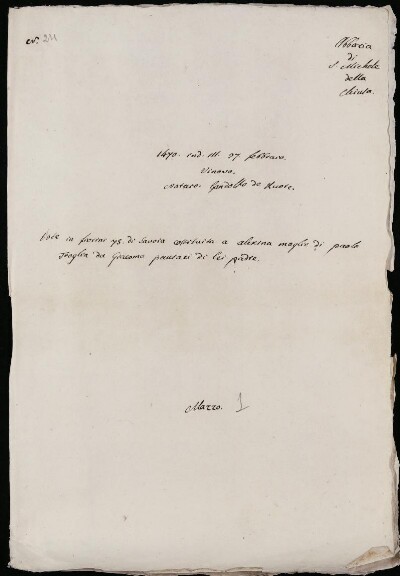 N.° 211
Abbazia
di
S. Michele
della
Chiusa.
1470. ind. III. 27 febbraro.
Vinovo.
Notaro. Gandolfo de
Dote in fiorini 75. di Savoia costituita a moglie di paolo
da Giacomo di lei padre.
Mazzo. 1